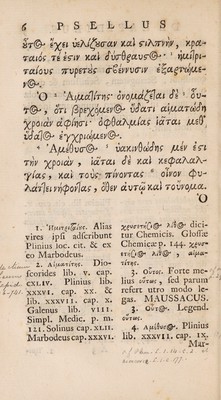 6 PSELLUS
ὗτ⊙ ἔχει ὑελίζεσαν καὶ σιλπνὴν, κρα-
ταιός τέ ἐσιν καὶ δύσθραυσ⊙· ἡμιτρι-
ταίους πυρετὸς σβέννυσιν ἐξαρτώμε-
ν⊙.
Ὁ Αἱματίτης ὀνομάζεται δὲ οὕτ-
⊙, ὅτι βρεχόμεν⊙ ὕδατι αἱματώδη
χροιὰν ἀφίησι· ὀφθαλμίας ἰᾶται μεθ᾽
ὕδατ⊙ ἐγχριόμεν⊙.
Ἀμέθυσ⊙ ὑακινθώδης μέν ἐστι
τὴν χροιὰν, ἰᾶται δὲ καὶ κεφαλαλ-
γίας, καὶ τοὺς πίνοντας οἶνον φυ-
λάττει νηφοσίας, ὅθεν αὐτῷ καὶ τοὔνομα.
Ὁ
1. Alias
vires ipsi adscribunt
Plinius loc. cit. & ex
eo Marbodeus.
2. Αἱματίτης. Dio-
scorides lib. v. cap.
cxLIV. Plinius lib.
XXXVI. cap. XX. &
lib. XXXVII. cap. X.
Galenus lib. VIII.
Simpl. Medic. p. m.
121. Solinus cap. XLII.
Marbodeus cap. XXXII.
λίθ⊙ dici-
tur Chemicis. Glossæ
Chemicæ p. 144.
λίθ⊙, αἱμα-
τίτης.
3. Οὗτος. Forte me-
lius οὕτως, sed parum
refert utro modo le-
gas. MAUSSACUS.
3. Οὗτ⊙. Legend.
οὕτως.
4. Ἀμέθυσ⊙. Plinius
lib. XXXVII. cap. IX.
Mar-